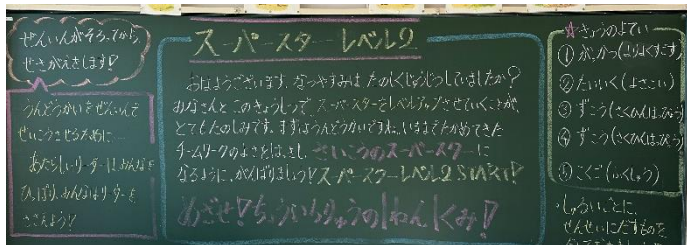 ぜんいんがそろってから、
せきがえをします!
うんどうかいをぜんいんで
せいこうさせるために…
あたらしいリーダーはみんなを
ひっぱり、みんなはリーダーを
ささえよう!
スーパースターレベル2
おはようございます。なつやすみは たのしくじゅうじつしていましたか?
みなさんと このきょうしつで スーパースターをレベルアップさせていくことが、
とてもたのしみです。まずはうんどうかいですね。いままでたかめてきた
チームワークのよさをはっきし、さいこうのスーパースターに
なるように、がんばりましょう!スーパースターレベル2
めざせ!ちょういちりゅうの1ねん1くみ!
☆きょうのよてい
① がっかつ
② たいいく(よさこい)
③ ずこう(さくひんはっぴょう)
④ ずこう(さくひんはっぴょう)
⑤ こくご(ふくしゅう)
せんせいにだすものを